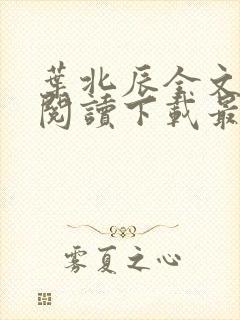 葉北辰全文
閱讀下載最
雾夏之心